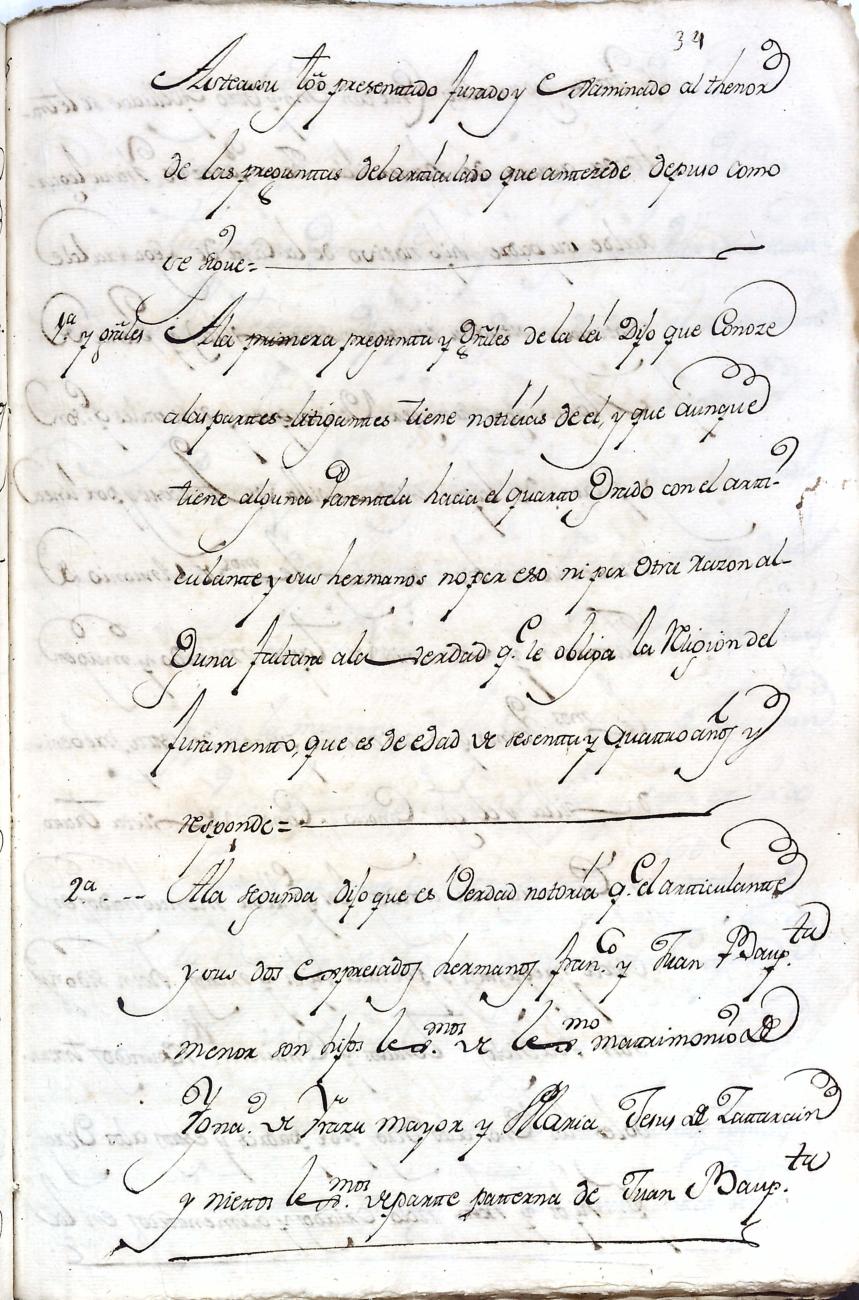 34
Asteasu t.º presenttado Jurado y Examinado al thenor
de las preguntas del artículado que antterede depuso como
se sigue =
1.ª y grãles A la primera pregunta y Grãles de la lei Dijo que Conoze
a las parttes litigantes tiene notícias de el, y que aunque
tiene alguna Parenttela hacia el quartto Grado con el artti-
culante y sus hermanos no por eso ni por Otra razon al-
Guna faltara a la verdad q.e le obliga la Religion del
Juramentto, que es de edad de sesentta y Quattro años y
responde =
2.ª A la segunda dijo que es Verdad nottoria q.e el artticulantte
y sus dos expresados hermanos fran.co y Juan Baup.ta
menor son hijos lex.mos de lex.mo mattrimonio de
Ygna.º de Yraru mayor y Maria Jesus de Lattarain
y niettos lex.mos de partte patterna de Juan Baup.ta